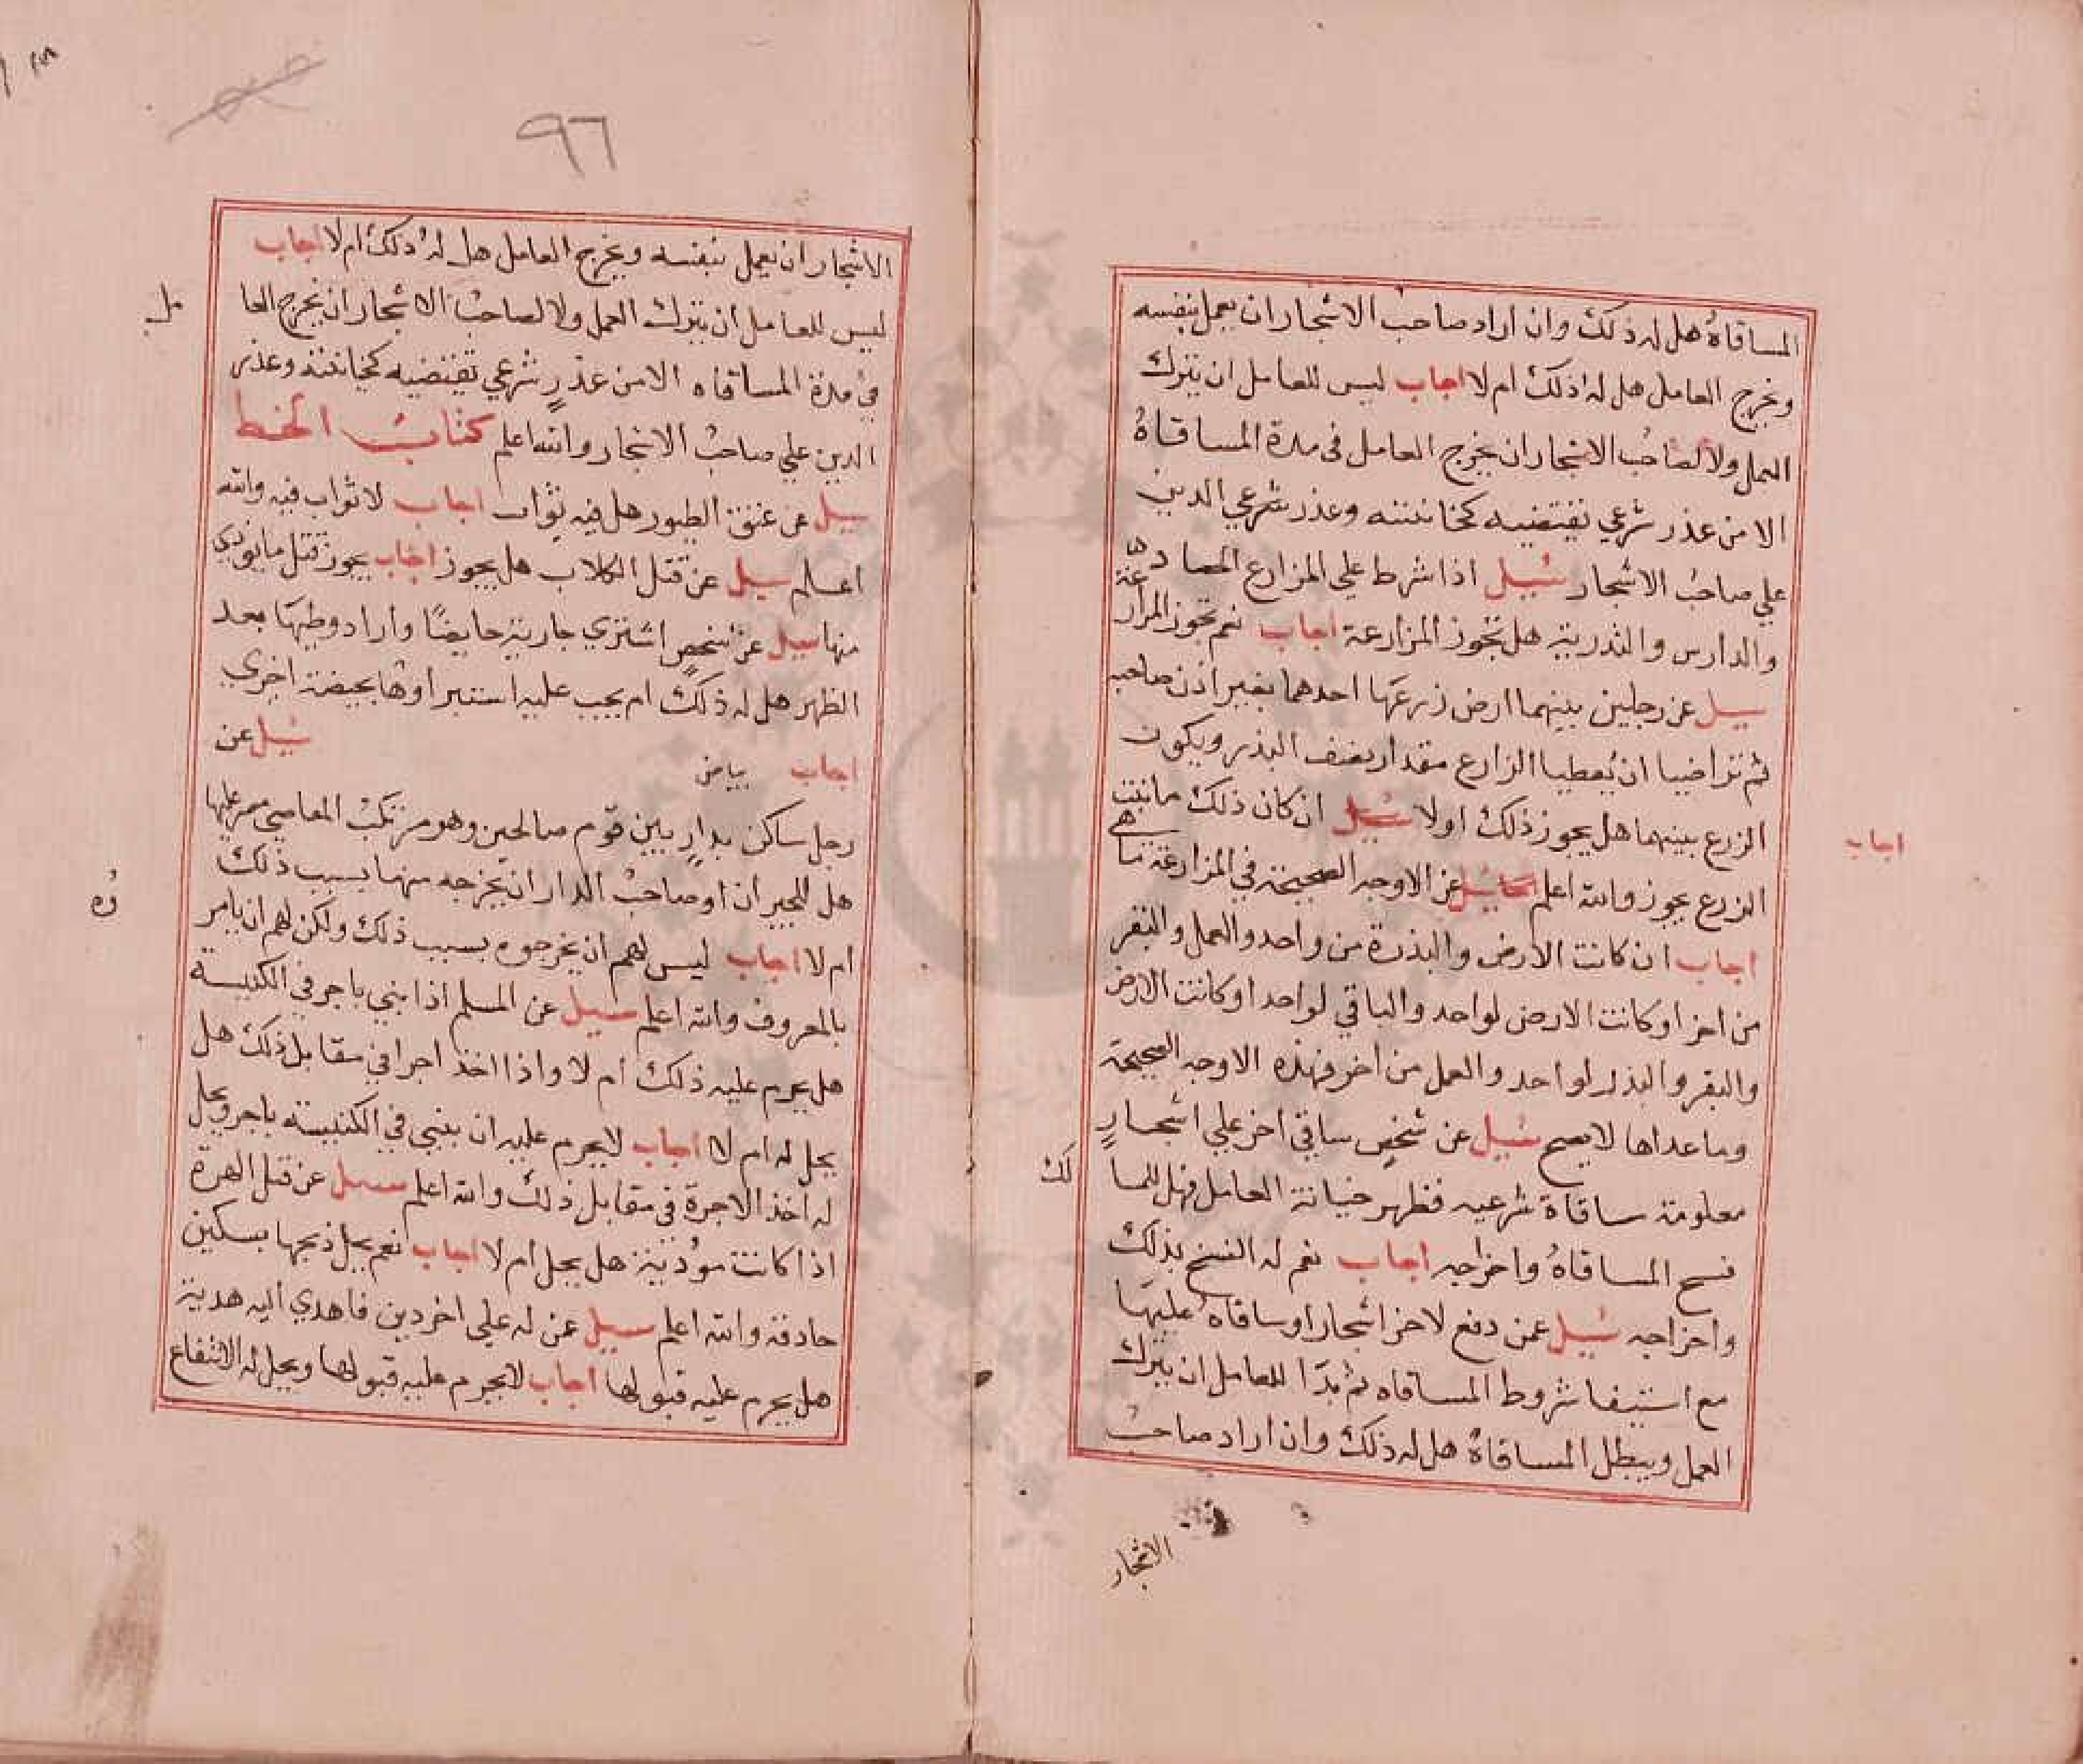 المساقاة هل له ذلك وان اراد صاحب الاشجار ان يعمل بنفسه
ويخرج العامل هل له ذلك ام لا اجاب ليس للعامل ان يترك
العمل ولا لصاحب الاشجار ان يخرج العامل فى مدة المساقاة
الا من عذر شرعي يقتضيه كخيانته وعذر شرعي الدين
علي صاحب الاشجار سيل اذا شرط علي المزارع الحصاد
والدارس والتدرية هل تجوز المزارعة اجاب نعم تجوز المزارعة
سيل عن رجلين بينهما ارض زرعها احدهما بغير اذن صاحبه
ثم تراضيا ان يعطيا الزارع مقدار نصف البذر ويكون
الزرع بينهما هل يجوز ذلك اولا سيل ان كان ذلك ما نبت
اجاب
الزرع يجوز والله اعلم سيل عن الاوجه الصحيحة في المزارعة ما هي
اجاب ان كانت الارض والبذرة من واحد والعمل والبقر
من اخر او كانت الارض لواحد والباقي لواحد او كانت الارض
والبقر والبذر لواحد والعمل من اخر فهذه الاوجه الصحيحة
وما عداها لا يصح سيل عن شخص ساقي اخر علي اشجار
معلومة ساقاة شرعيه فظهر خيانة العامل فهل للمالك
فسح المساقاة واخراجه اجاب نعم له الفسخ بذلك
واخراجه سيل عمن دفع لاخر اشجارا وساقاه عليها
مع استيفا شروط المساقاه ثم بدا للعامل ان يترك
العمل ويبطل المساقاة هل له ذلك وان اراد صاحب
الاشجار
٩٦
الاشجار ان يعمل بنفسه ويخرج العامل هل له ذلك ام لا اجاب
ليس للعامل ان يترك العمل ولا لصاحب الاشجار ان يخرج العامل
في مدة المساقاه الا من عذر شرعي يقتضيه كخيانته وعذر
الدين علي صاحب الاشجار والله اعلم كتاب الحظر
سيل عن عتق الطيور هل فيه ثواب اجاب لا ثواب فيه والله
اعلم سيل عن قتل الكلاب هل يجوز اجاب يجوز قتل ما يوذي
منها سيل عن شخص اشتري جارية حايضا واراد وطيها بعد
الطهر هل له ذلك ام يجب عليه استبراوها بحيضة اخري
اجاب بياض سيل عن
رجل ساكن بدار بين قوم صالحين وهو مرتكب المعاصي مصر عليها
هل للجيران او صاحب الدار ان يخرجه منها بسبب ذلك
ام لا اجاب ليس لهم ان يخرجوه بسبب ذلك ولكن لهم ان يامروه
بالمعروف والله اعلم سيل عن المسلم اذا بني باجر في الكنيسة
هل يحرم عليه ذلك أم لا واذا اخذ اجرا في مقابل ذلك هل
يحل له ام لا اجاب لا يحرم عليه ان يبني في الكنيسته باجر ويحل
له اخذ الاجرة في مقابل ذلك والله اعلم سيل عن قتل الهرة
اذا كانت موذية هل يحل ام لا اجاب نعم يحل ذبحها بسكين
حادقة والله اعلم سيل عن له علي اخر دين فاهدي اليه هدية
هل يحرم عليه قبولها اجاب لا يحرم عليه قبولها ويحل له الانتفاع